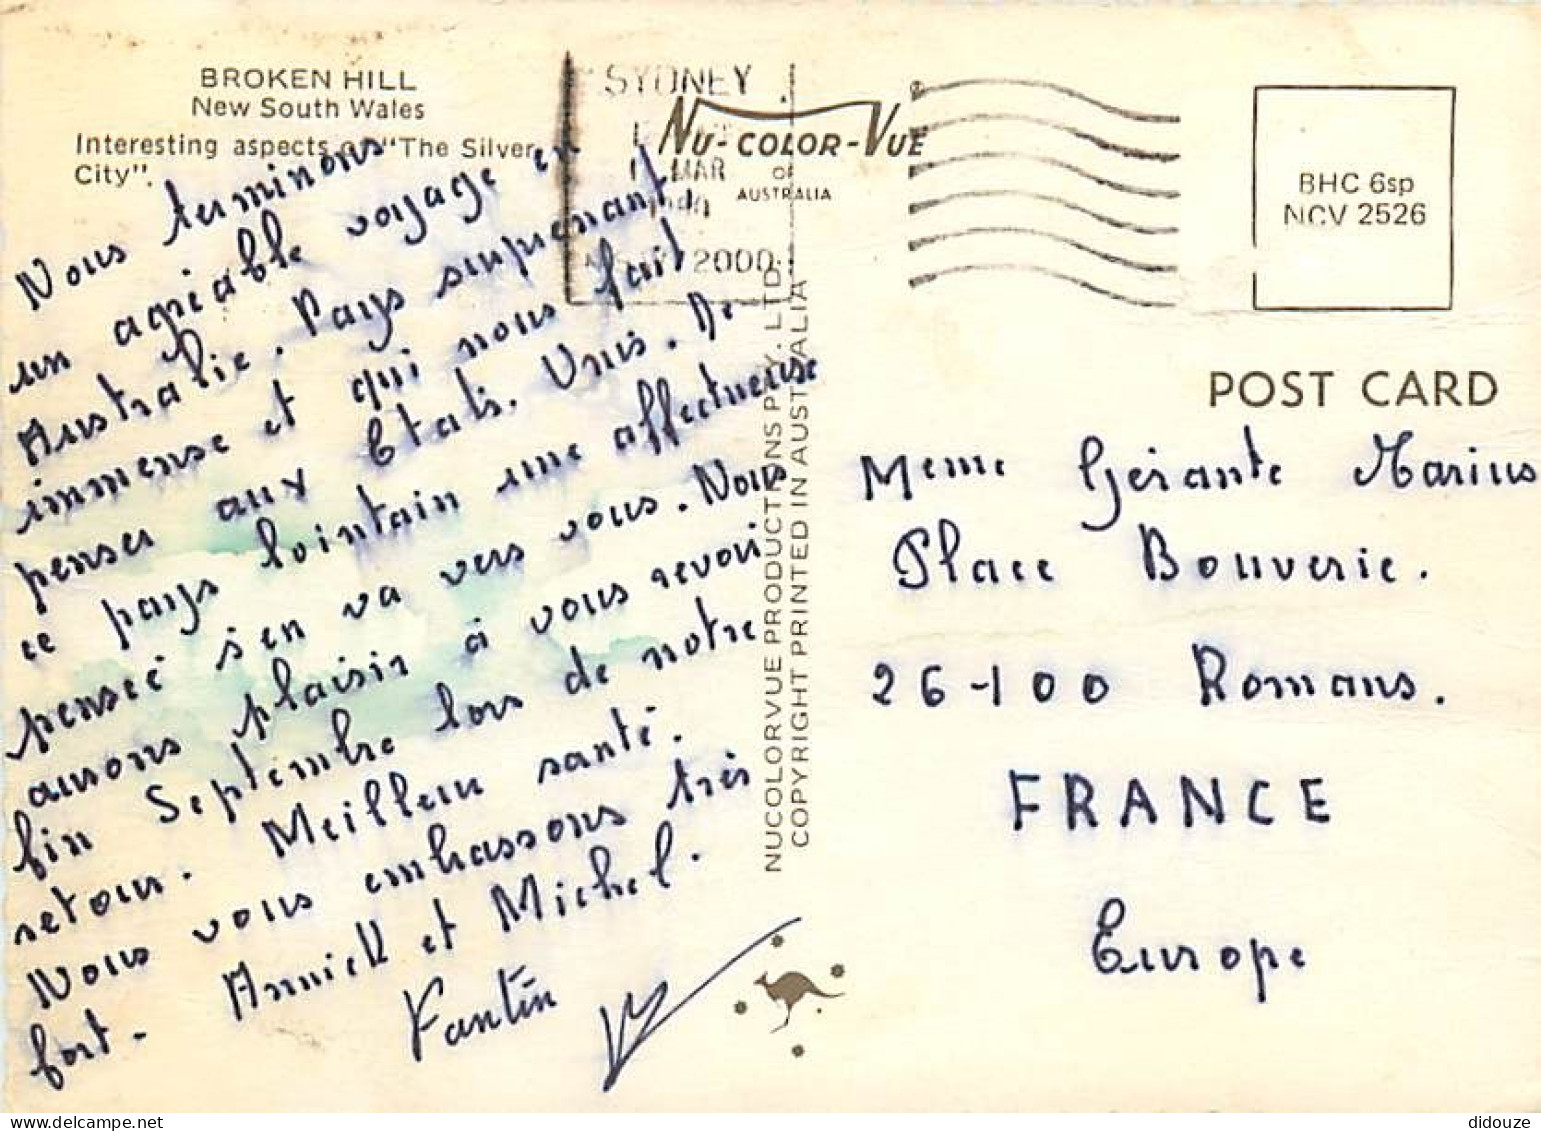 BROKEN HILL
New South Wales
Interesting aspects of "The Silver
City".
SYDNEY
MAR
2000
NU-COLOR-VUE
OF
AUSTRALIA
BHC 6sp
NCV 2526
POST CARD
Nous terminons
un agréable voyage en
Australie. Pays surprenant,
immense et qui nous fait
penser aux Etats. Unis. De
ce pays lointain une affectueuse
pensée s'en va vers vous. Nous
aurons plaisir à vous revoir
fin Septembre lors de notre
retour. Meilleure santé.
Nous vous embrassons très
fort. Annick et Michel.
Fantin
NUCOLORVUE PRODUCTIONS PTY. LTD.
COPYRIGHT PRINTED IN AUSTRALIA
Meme Gérante Marius
Place Bouverie.
26-100 Romans.
FRANCE
Europe
delcampe.net
didouze